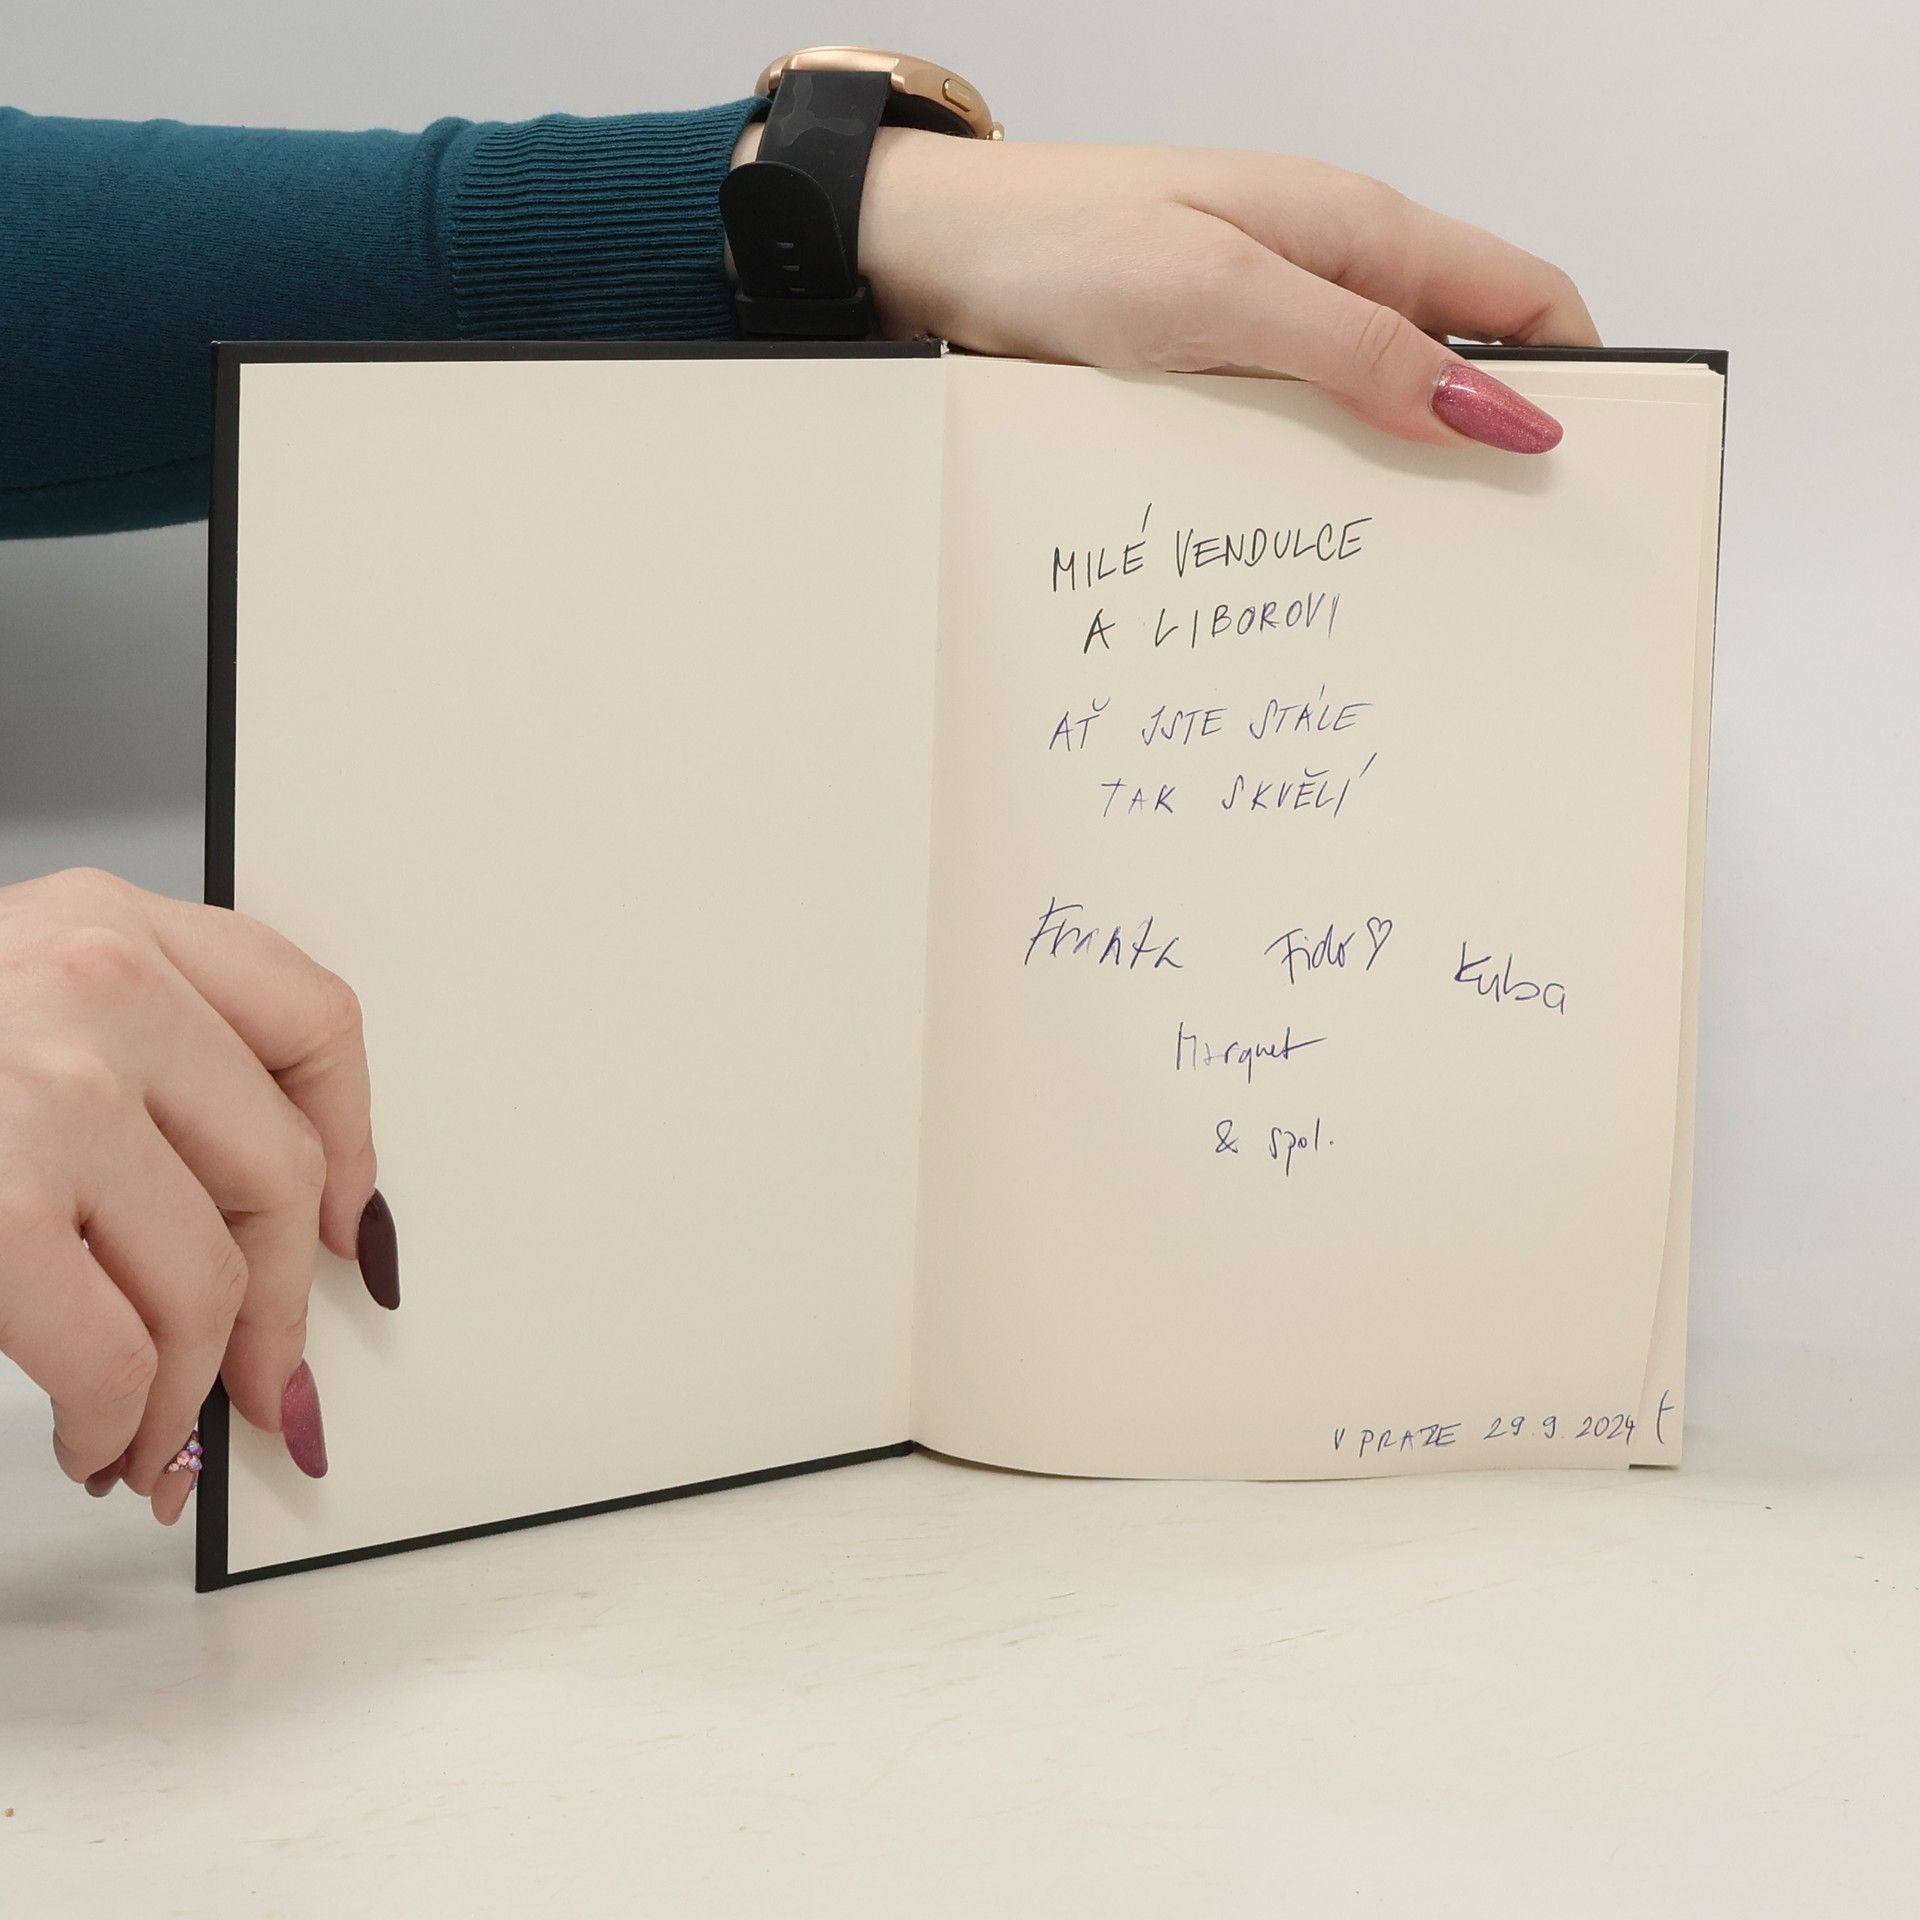 MILÉ VENDULCE
A LIBOROVI
AŤ JSTE STÁLE
TAK SKVĚLÍ
Fido♡ Kuba
Marquet
& spol.
V PRAZE 29.9.2024